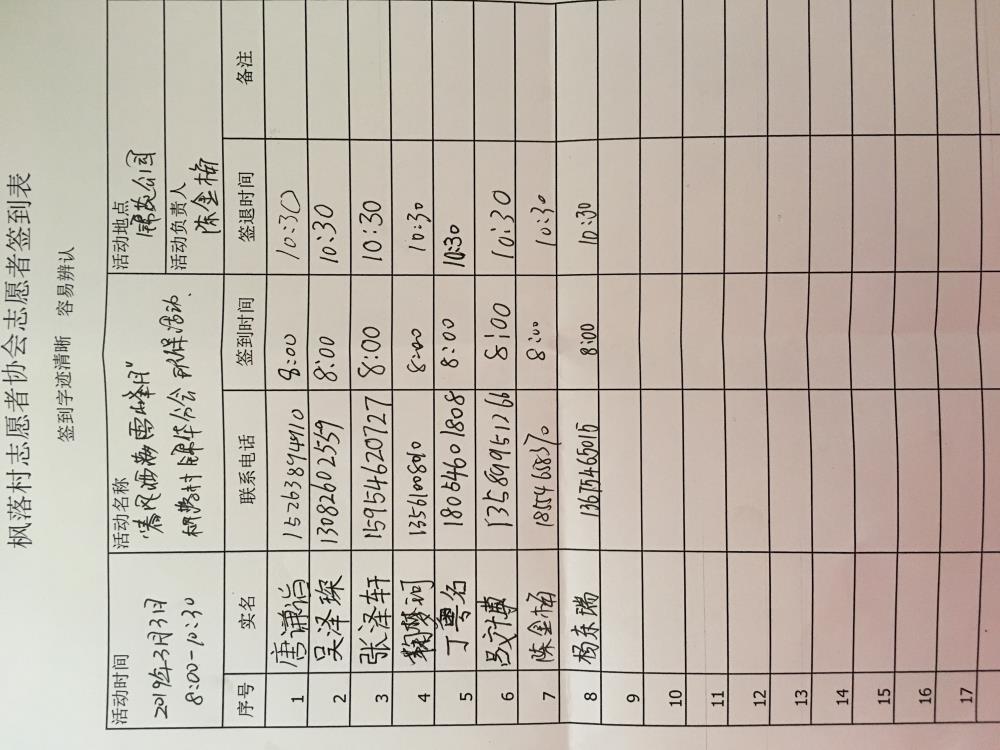 枫落村志愿者协会志愿者签到表
签到字迹清晰 容易辨认
活动时间
2019年3月3日
8:00-10:30
活动名称
"春风洒满雷锋月"
枫落村锦华分会 环保活动、
活动地点
锦苑公司
活动负责人
陈金梅
序号 实名 联系电话 签到时间 签退时间 备注
1 唐谦诣 15263894910 8:00 10:30
2 吴泽琛 13082602559 8:00 10:30
3 张泽轩 15954620727 8:00 10:30
4 鞠梦珂 8:00 10:30
5 丁粤名 18054601808 8:00 10:30
6 13589951266 8:00 10:30
7 陈金梅 8:00 10:30
8 杨东瑞 13675465015 8:00 10:30
9
10
11
12
13
14
15
16
17